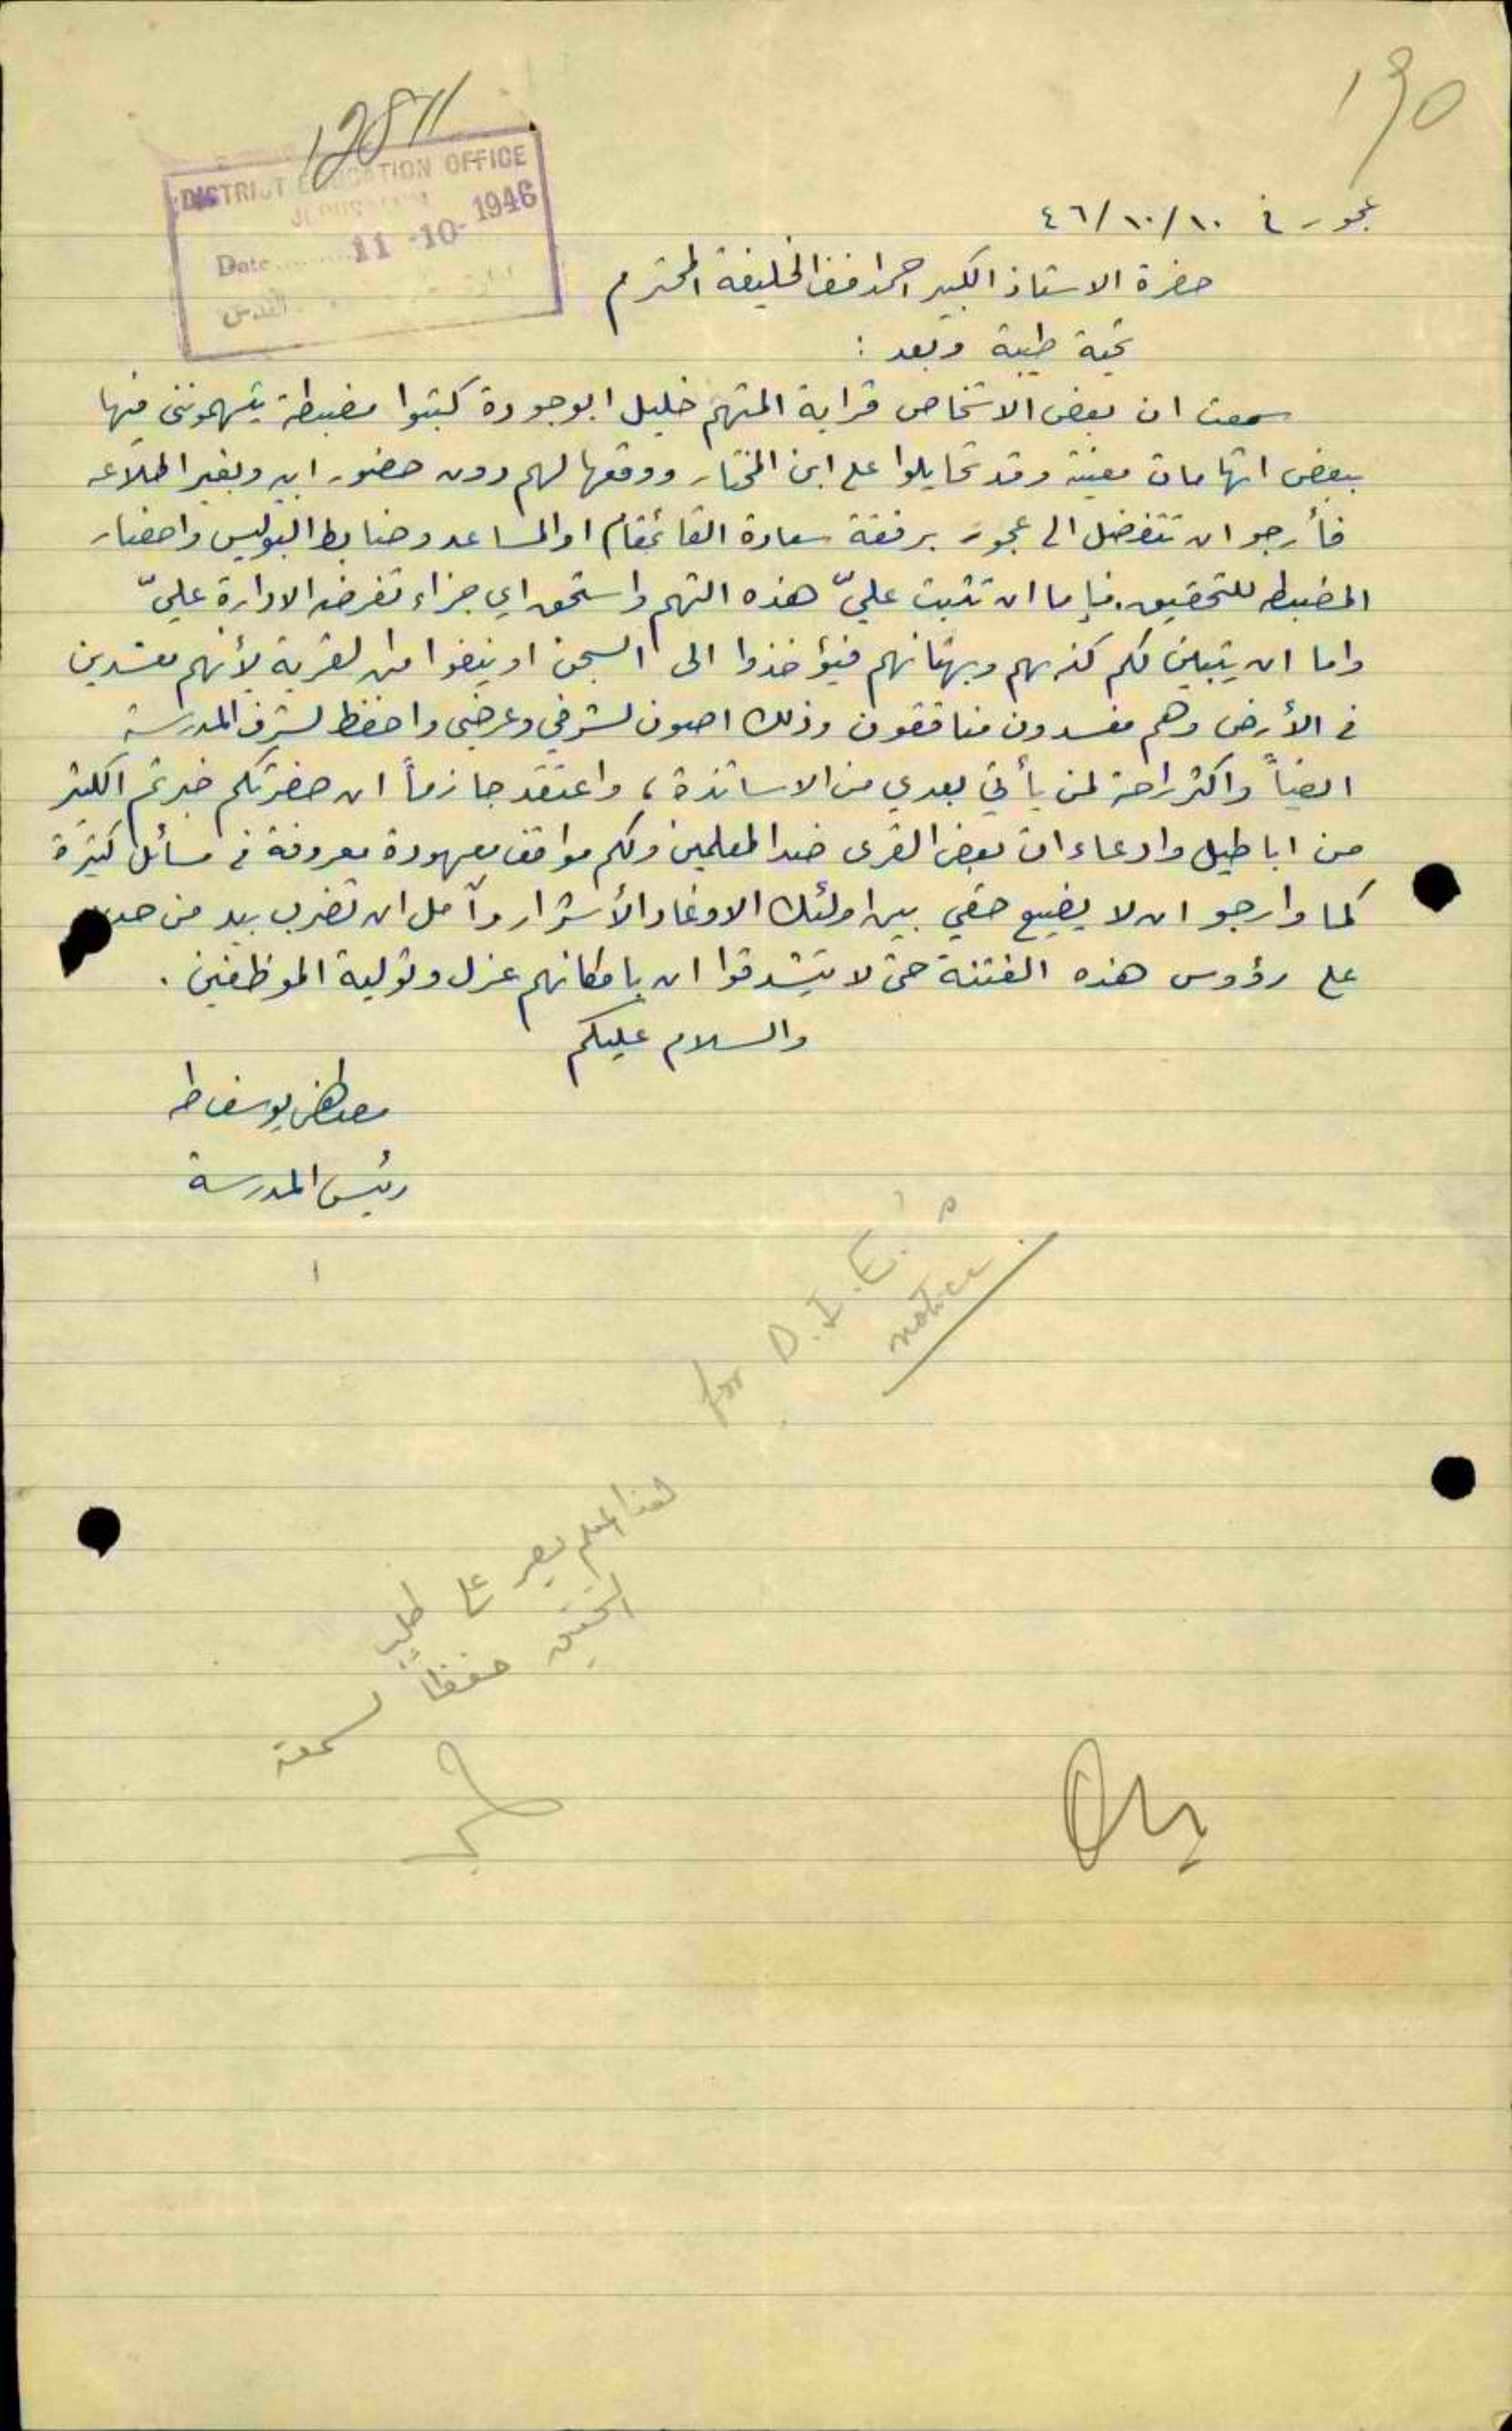 190
12811
DISTRICT EDUCATION OFFICE
JERUSALEM
Date 11-10-1946
القدس
عجور في ١٠/١٠/٤٦
حضرة الاستاذ الكبير احمد افندي الخليفة المحترم
تحية طيبة وبعد :
سمعت ان بعض الاشخاص قرابة المتهم خليل ابو جودة كتبوا مضبطة يتهمونني فيها
ببعض اتهامات معينة وقد تحايلوا على ابن المختار ووقعها لهم دون حضور ابيه وبغير اطلاعه
فأرجو ان تتفضل الى عجور برفقة سعادة القائمقام او المساعد وضابط البوليس واحضار
المضبطه للتحقيق. فإما ان تثبت عليّ هذه التهم واستحق اي جزاء تفرضه الادارة عليّ
واما ان يتبين لكم كذبهم وبهتانهم فيؤخذوا الى السجن او ينفوا من القرية لأنهم مفسدين
في الأرض وهم مفسدون منافقون وذلك اصون لشرفي وعرضي واحفظ لشرف المدرسة
ايضاً واكثر راحة لمن يأتي بعدي من الاساتذة، واعتقد جازماً ان حضرتكم خبرتم الكثير
من اباطيل وادعاءات بعض القرى ضد المعلمين ولكم مواقف معهودة معروفة في مسائل كثيرة
كما وارجو ان لا يضيع حقي بين اولئك الاوغاد الأشرار وآمل ان تضرب بيد من حديد
على رؤوس هذه الفتنة حتى لا يتشدقوا ان بامكانهم عزل وتولية الموظفين .
والسلام عليكم
مصطفى يوسف طه
رئيس المدرسة
for D.I.E.'s
notice.
هذا المعلم يصر على طلب
التحقيق حفظاً لسمعته